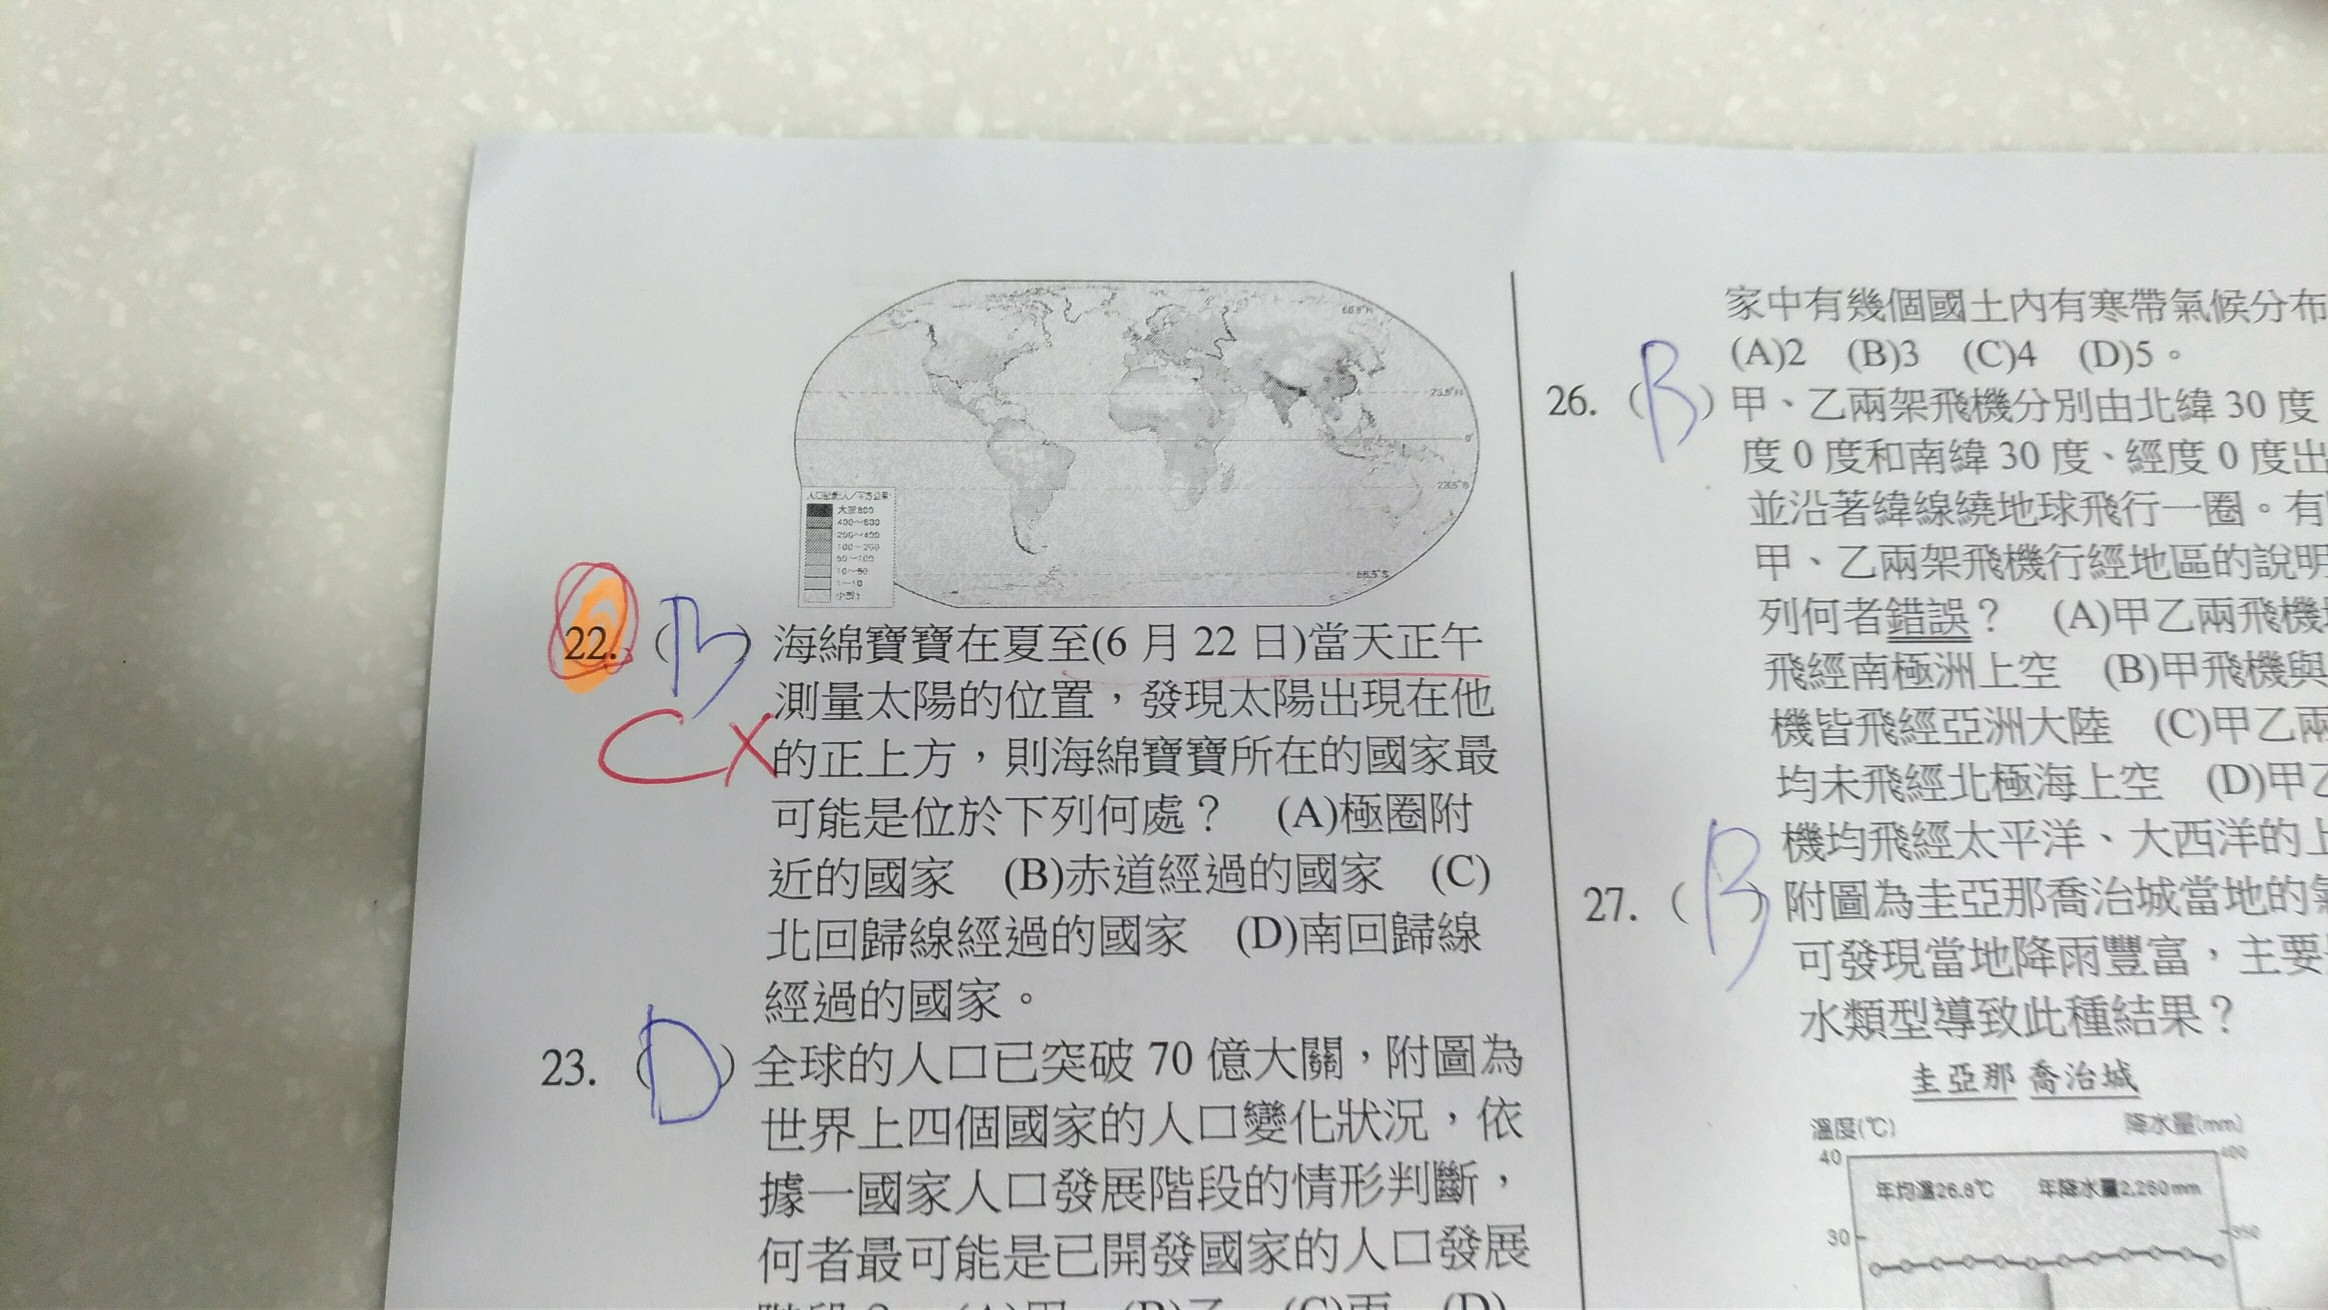 66.5°N
23.5°N
0°
23.5°S
66.5°S
人口密度:人/平方公里
大於800
400~800
200~400
100~200
50~100
10~50
1~10
小於1
22. (B) 海綿寶寶在夏至(6月22日)當天正午
測量太陽的位置，發現太陽出現在他
C X
的正上方，則海綿寶寶所在的國家最
可能是位於下列何處？ (A)極圈附
近的國家 (B)赤道經過的國家 (C)
北回歸線經過的國家 (D)南回歸線
經過的國家。
23. (D) 全球的人口已突破70億大關，附圖為
世界上四個國家的人口變化狀況，依
據一國家人口發展階段的情形判斷，
何者最可能是已開發國家的人口發展
家中有幾個國土內有寒帶氣候分布
(A)2 (B)3 (C)4 (D)5。
26. (B) 甲、乙兩架飛機分別由北緯30度
度0度和南緯30度、經度0度出
並沿著緯線繞地球飛行一圈。有
甲、乙兩架飛機行經地區的說明
列何者錯誤？ (A)甲乙兩飛機
飛經南極洲上空 (B)甲飛機與
機皆飛經亞洲大陸 (C)甲乙兩
均未飛經北極海上空 (D)甲乙
機均飛經太平洋、大西洋的上
27. (B) 附圖為圭亞那喬治城當地的氣
可發現當地降雨豐富，主要
水類型導致此種結果？
圭亞那 喬治城
溫度(℃) 降水量(mm)
40 400
年均溫26.8℃ 年降水量2,260mm
30 350